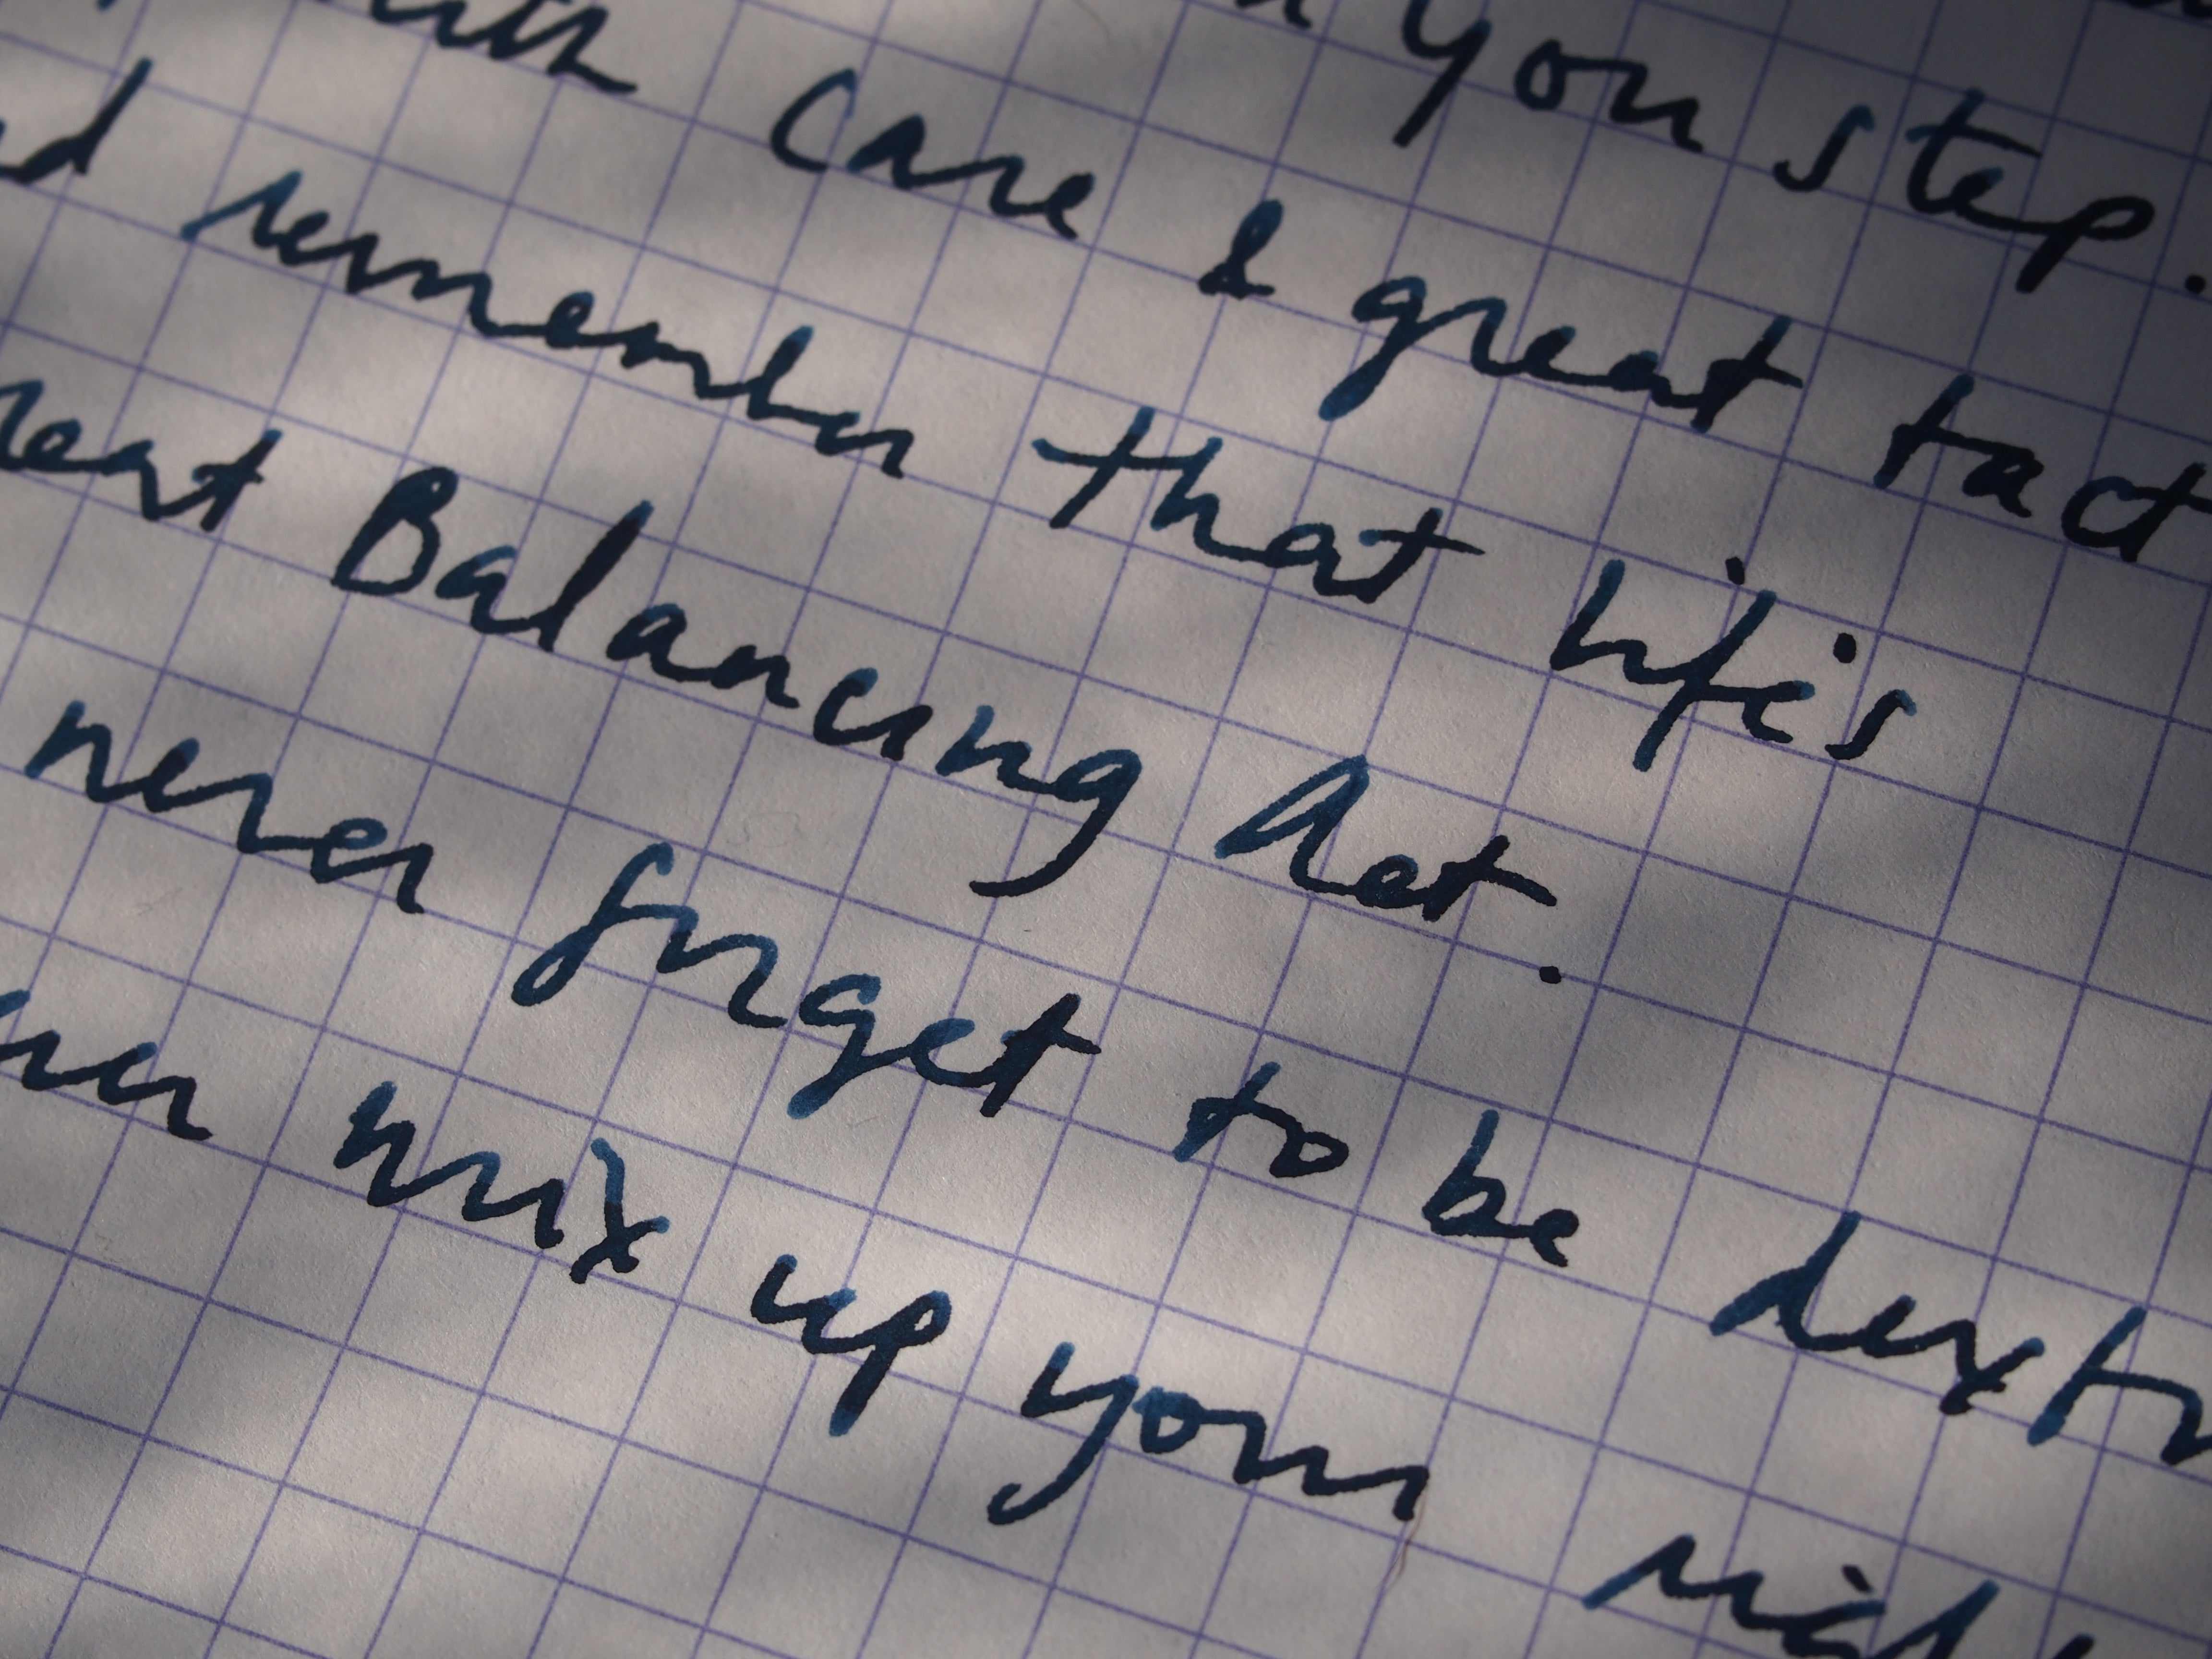 you step.
with care & great tact
remember that life's
Great Balancing Act.
never forget to be dext
never mix up your